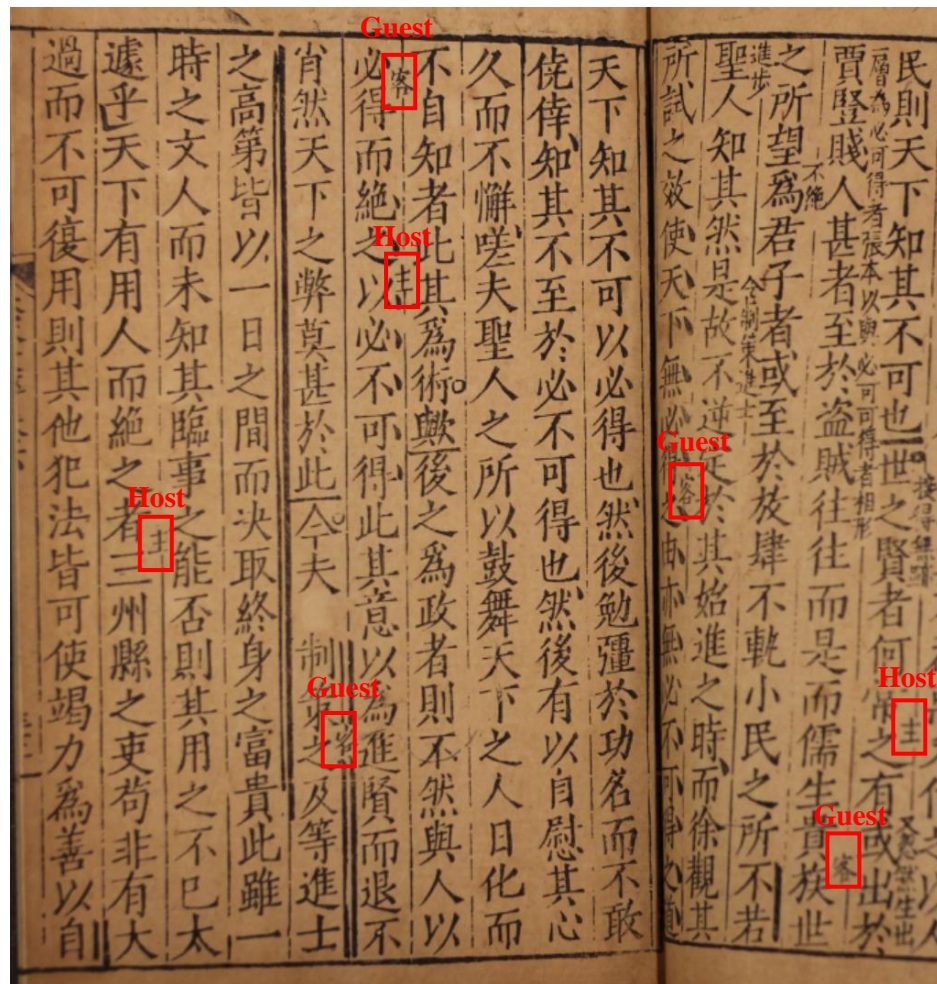 民則天下知其不可也世之賢者何常之有或出於
接得無跡
主
賈豎賤人甚者至於盜賊往往而是而儒生貴族世
不絕
客
之所望爲君子者或至於放肆不軌小民之所不若
進步
含制策進士
聖人知其然是故不逆定於其始進之時而徐觀其
所試之效使天下無必得之由亦無必不可得之道
客
天下知其不可以必得也然後勉彊於功名而不敢
僥倖知其不至於必不可得也然後有以自慰其心
久而不懈嗟夫聖人之所以鼓舞天下之人日化而
不自知者此其爲術歟後之爲政者則不然與人以
客
主
必得而絶之以必不可得此其意以爲進賢而退不
客
肖然天下之弊莫甚於此今夫 制策之及等進士
之高第皆以一日之間而決取終身之富貴此雖一
時之文人而未知其臨事之能否則其用之不已太
主
遽乎天下有用人而絶之者三州縣之吏苟非有大
過而不可復用則其他犯法皆可使竭力爲善以自
Guest
Host
Guest
Host
Guest
Host
Guest